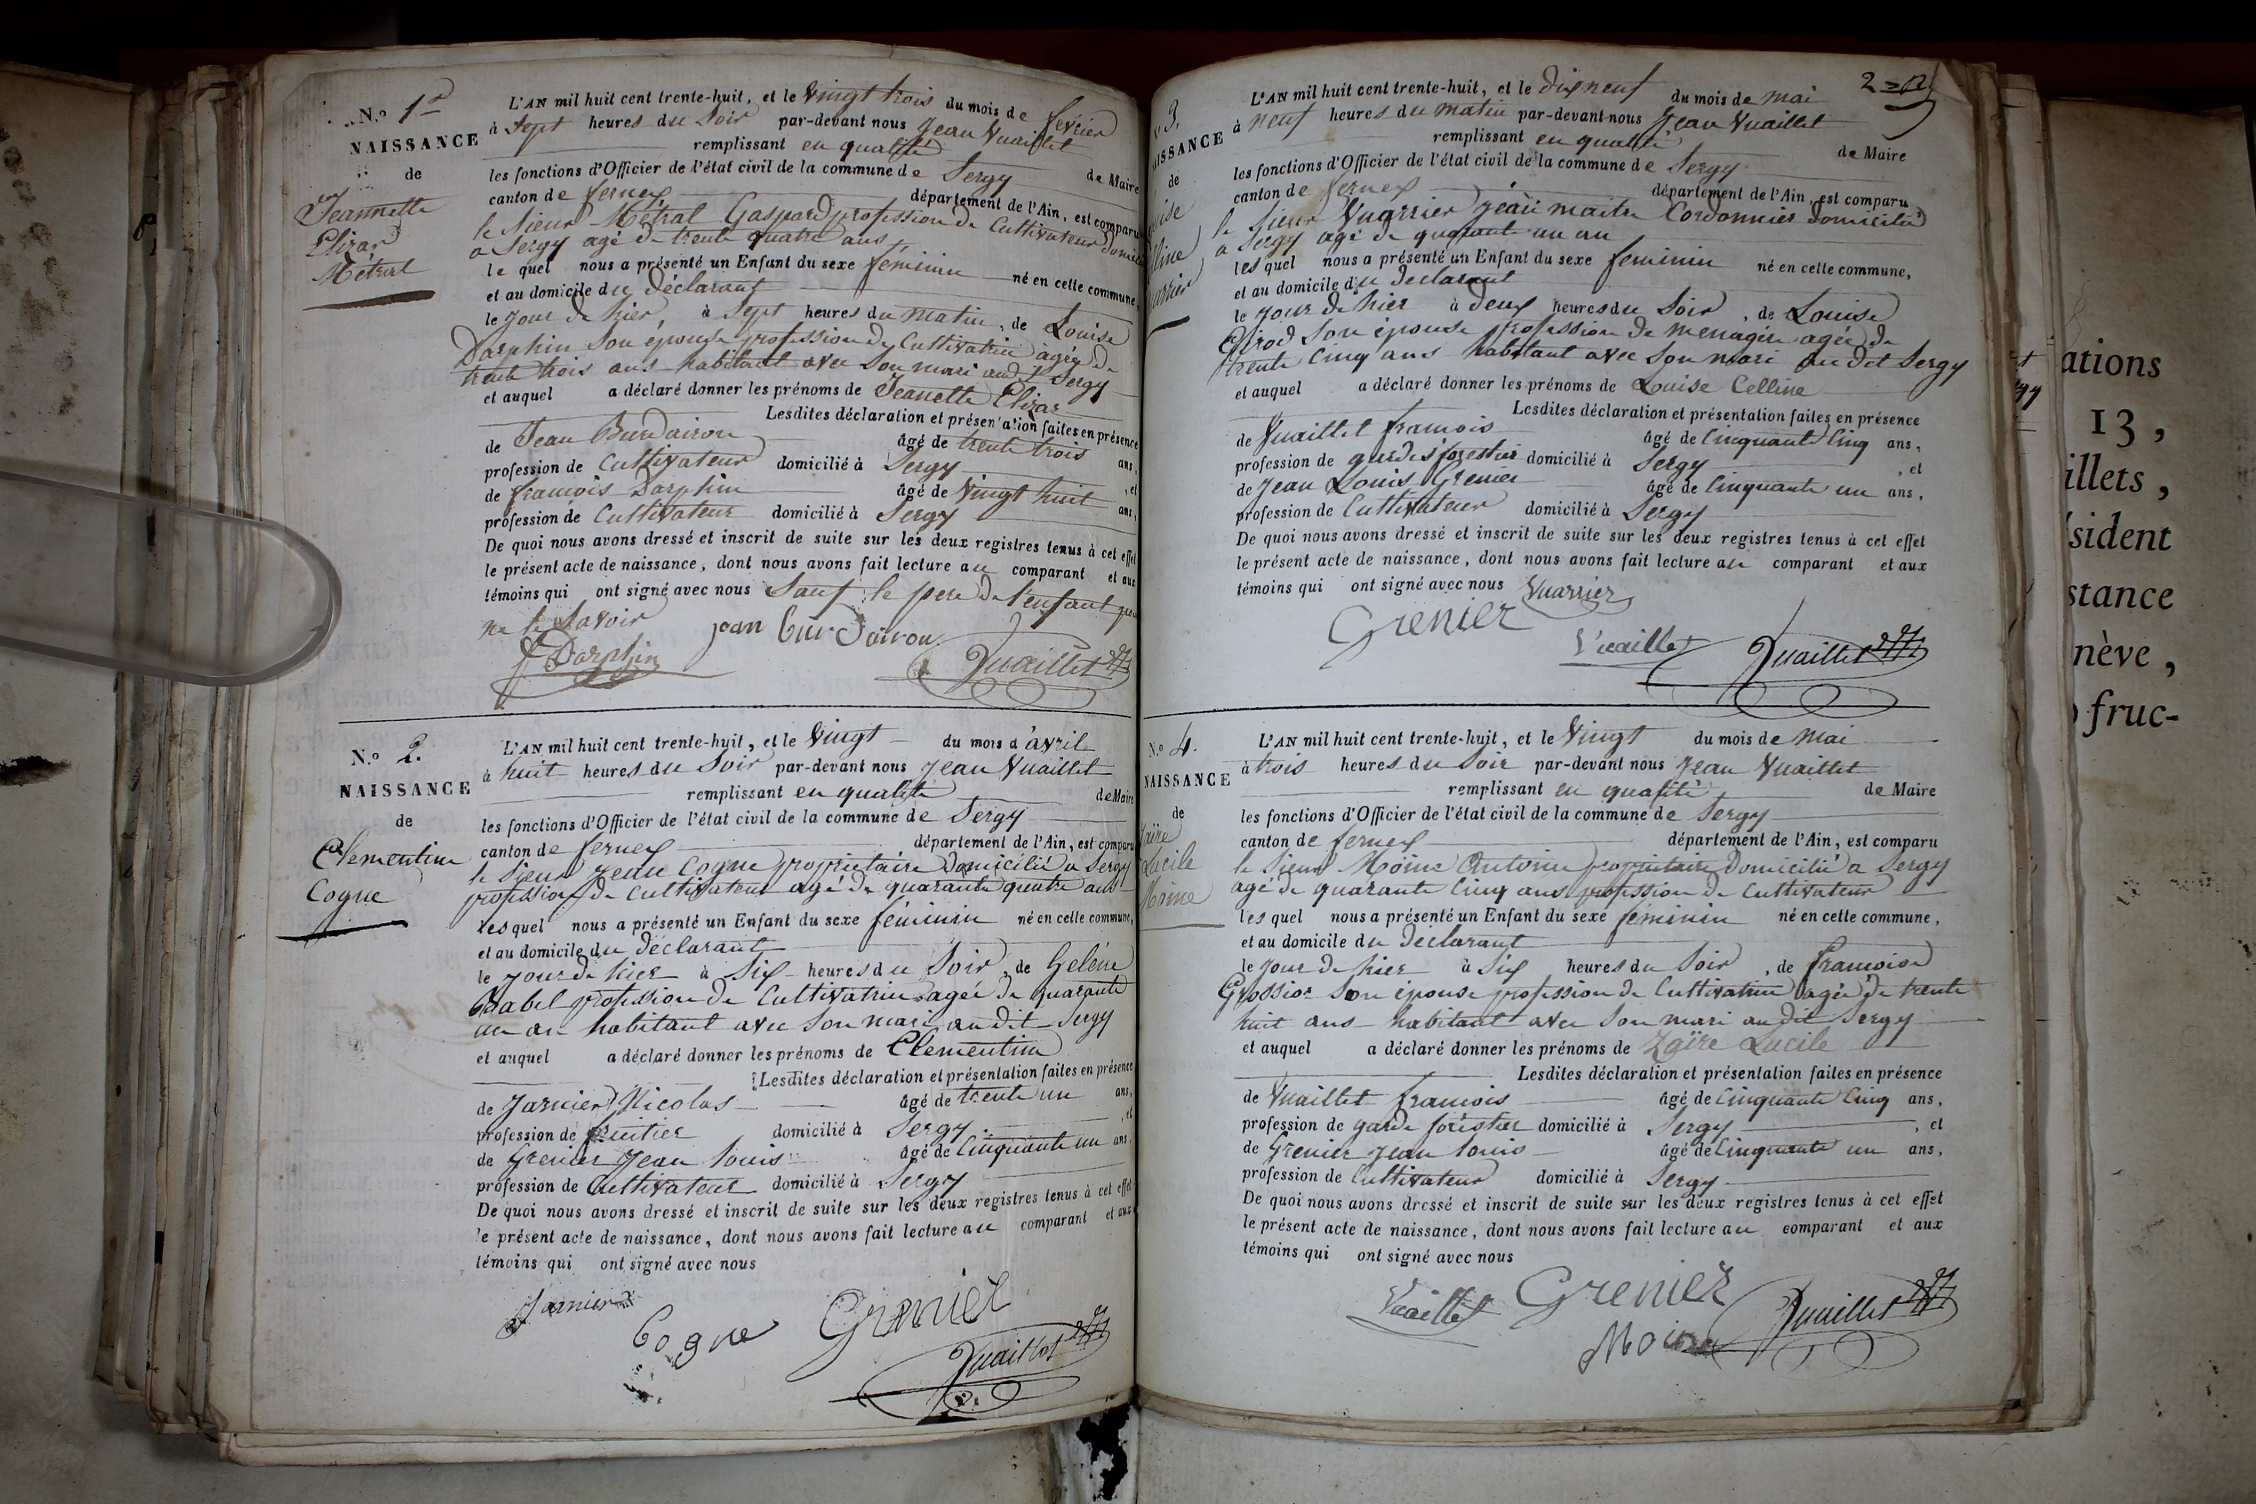 N.º 1er
NAISSANCE
de
Jeannette
Elizar
Métral
L'AN mil huit cent trente-huit, et le Vingt trois du mois de fevrier
à Sept heures du Soir par-devant nous Jean Vuaillet
remplissant en qualité de Maire
les fonctions d'Officier de l'état civil de la commune de Sergy
canton de fernex département de l'Ain, est comparu
le Sieur Métral Gaspard profession de Cultivateur domicil
a Sergy agé de trente quatre ans
le quel nous a présenté un Enfant du sexe féminin né en cette commune,
et au domicile du déclarant
le jour de hier, à Sept heures du matin, de Louise
Darphin son épouse profession de Cultivatrice agée de
trente trois ans habitant avec son mari aud.t Sergy
et auquel a déclaré donner les prénoms de Jeanette Elizar
Lesdites déclaration et présentation faites en présence
de Jean Burdairon âgé de trente trois ans,
profession de Cultivateur domicilié à Sergy, et
de francois Darphin âgé de Vingt huit ans,
profession de Cultivateur domicilié à Sergy
De quoi nous avons dressé et inscrit de suite sur les deux registres tenus à cet effet
le présent acte de naissance, dont nous avons fait lecture au comparant et aux
témoins qui ont signé avec nous Sauf le pere de l'enfant
ne le Savoir
f Darphin jean burdairon Vuaillet
N.º 2.
NAISSANCE
de
Clementine
Cogne
L'AN mil huit cent trente-huit, et le Vingt du mois d'avril
à huit heures du Soir par-devant nous Jean Vuaillet
remplissant en qualité de Maire
les fonctions d'Officier de l'état civil de la commune de Sergy
canton de fernex département de l'Ain, est comparu
le Sieur Jean Cogne propriétaire Domicilié a Sergy
profession de Cultivateur agé de quarante quatre ans
les quel nous a présenté un Enfant du sexe féminin né en cette commune,
et au domicile du déclarant
le jour de hier à Six heures du Soir, de Gelène
Babel profession de Cultivatrice agée de quarante
un an habitant avec son mari au dit Sergy
et auquel a déclaré donner les prénoms de Clementine
Lesdites déclaration et présentation faites en présence
de Jarnier Nicolas âgé de trente un ans,
profession de fruitier domicilié à Sergy, et
de Grenier Jean louis âgé de Cinquante un ans,
profession de Cultivateur domicilié à Sergy
De quoi nous avons dressé et inscrit de suite sur les deux registres tenus à cet effet
le présent acte de naissance, dont nous avons fait lecture au comparant et aux
témoins qui ont signé avec nous
Jarnier Cogne Grenier
Vuaillet
2
3.
AISSANCE
de
L'AN mil huit cent trente-huit, et le dixneuf du mois de mai
à neuf heures du matin par-devant nous Jean Vuaillet
remplissant en qualité de Maire
les fonctions d'Officier de l'état civil de la commune de Sergy
canton de fernex département de l'Ain, est comparu
le Sieur Vuarrier Jean maitre Cordonnier domicilié
a Sergy agé de quarante un an
les quel nous a présenté un Enfant du sexe feminin né en cette commune,
et au domicile du déclarant
le jour de hier à deux heures du Soir, de Louise
Girod Son épouse profession de menagère agée de
trente Cinq ans habitant avec Son mari au dit Sergy
et auquel a déclaré donner les prénoms de Louise Celline
Lesdites déclaration et présentation faites en présence
de Vuaillet francois âgé de Cinquante Cinq ans,
profession de gardes forestier domicilié à Sergy, et
de Jean Louis Grenier âgé de Cinquante un ans,
profession de Cultivateur domicilié à Sergy
De quoi nous avons dressé et inscrit de suite sur les deux registres tenus à cet effet
le présent acte de naissance, dont nous avons fait lecture au comparant et aux
témoins qui ont signé avec nous Vuarrier
Grenier Vuaillet Vuaillet
N.º 4.
NAISSANCE
de
Zaïre
Lucile
Moine
L'AN mil huit cent trente-huit, et le Vingt du mois de mai
à trois heures du Soir par-devant nous Jean Vuaillet
remplissant en qualité de Maire
les fonctions d'Officier de l'état civil de la commune de Sergy
canton de fernex département de l'Ain, est comparu
le Sieur Moine Antoine propriétaire Domicilié a Sergy
agé de quarante Cinq ans profession de Cultivateur
les quel nous a présenté un Enfant du sexe féminin né en cette commune,
et au domicile du déclarant
le jour de hier à Six heures du Soir, de francoise
Grossior Son épouse profession de Cultivatrice agée de trente
huit ans habitant avec Son mari au dit Sergy
et auquel a déclaré donner les prénoms de Zaïre Lucile
Lesdites déclaration et présentation faites en présence
de Vuaillet francois âgé de Cinquante Cinq ans,
profession de garde forestier domicilié à Sergy, et
de Grenier Jean louis âgé de Cinquante un ans,
profession de Cultivateur domicilié à Sergy
De quoi nous avons dressé et inscrit de suite sur les deux registres tenus à cet effet
le présent acte de naissance, dont nous avons fait lecture au comparant et aux
témoins qui ont signé avec nous
Vuaillet Grenier Vuaillet
Moine
ations
13,
illets,
sident
stance
nève,
fruc-